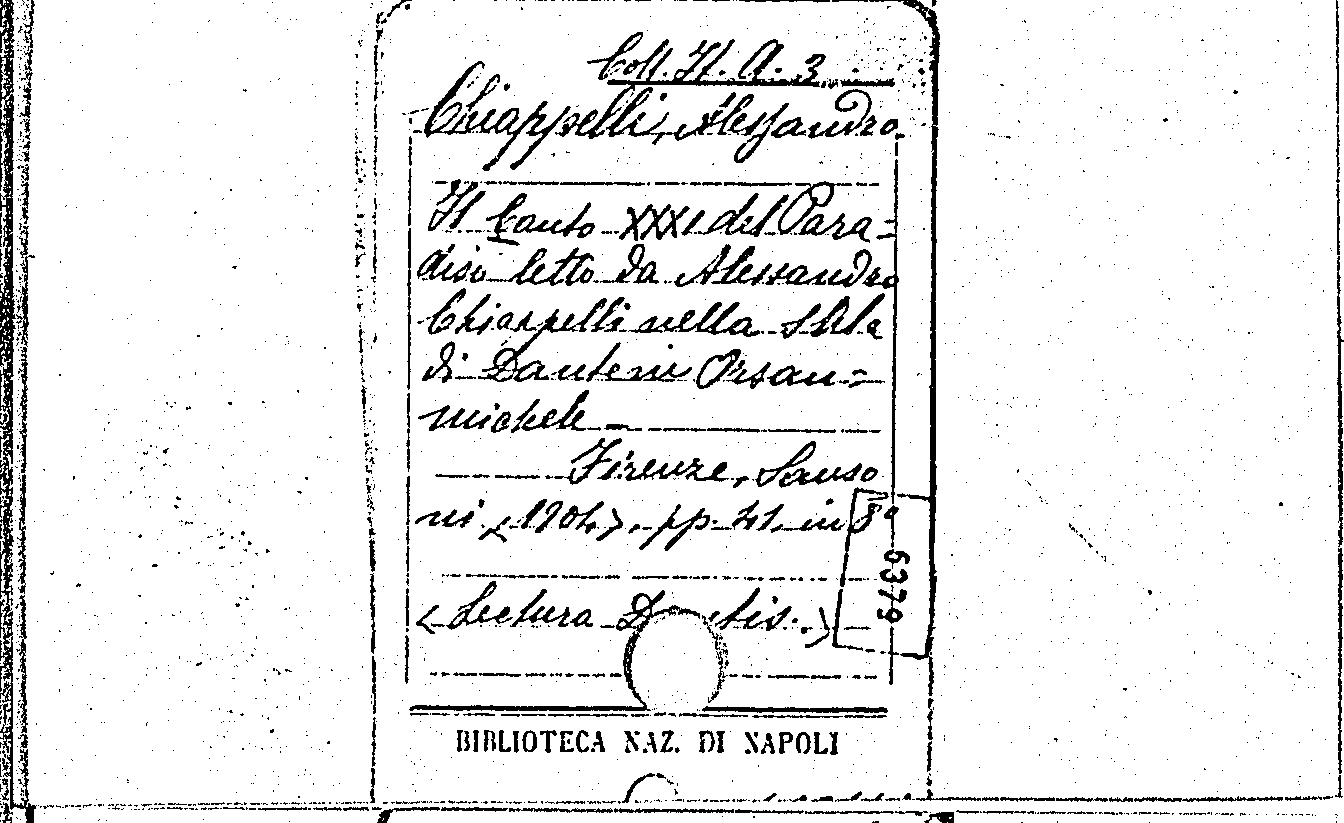 Coll. It. A. 3
Chiappelli, Alessandro.
Il Canto XXXI del Para=
diso letto da Alessandro
Chiappelli nella Sala
di Dante in Orsan=
michele –
Firenze, Sanso
ni, <1904>, pp. 41, in 8º
6379
<Lectura D tis.>
BIBLIOTECA NAZ. DI NAPOLI